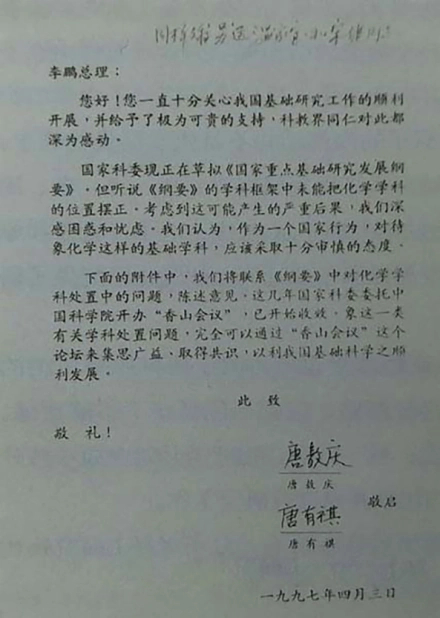 李鹏总理：
您好！您一直十分关心我国基础研究工作的顺利
开展，并给予了极为可贵的支持，科教界同仁对此都
深为感动。
国家科委现正在草拟《国家重点基础研究发展纲
要》。但听说《纲要》的学科框架中未能把化学学科
的位置摆正。考虑到这可能产生的严重后果，我们深
感困惑和忧虑。我们认为，作为一个国家行为，对待
象化学这样的基础学科，应该采取十分审慎的态度。
下面的附件中，我们将联系《纲要》中对化学学
科处置中的问题，陈述意见。这几年国家科委委托中
国科学院开办“香山会议”，已开始收效。象这一类
有关学科处置问题，完全可以通过“香山会议”这个
论坛来集思广益，取得共识，以利我国基础科学之顺
利发展。
此 致
敬 礼！
唐敖庆
唐 敖 庆
敬启
唐有祺
唐 有 祺
一九九七年四月三日